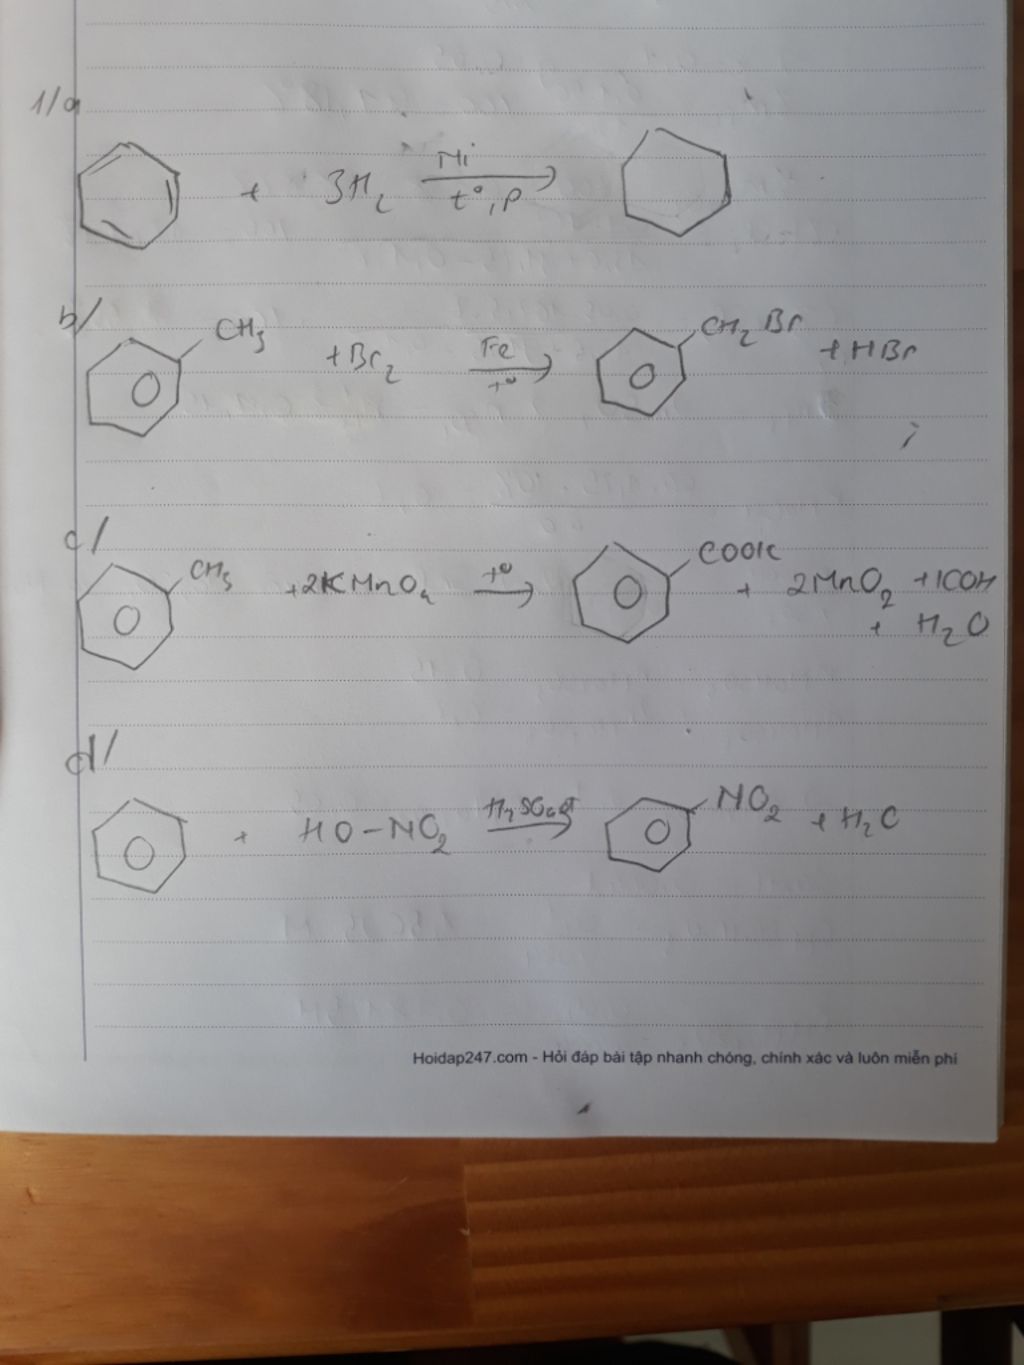 1/a
+ 3H2 Ni t°, p
b/
CH3 + Br2 Fe t° CH2Br + HBr
c/
CH3 + 2KMnO4 t° COOK + 2MnO2 + KOH
+ H2O
d/
+ HO-NO2 H2SO4 đ NO2 + H2O
Hoidap247.com - Hỏi đáp bài tập nhanh chóng, chính xác và luôn miễn phí